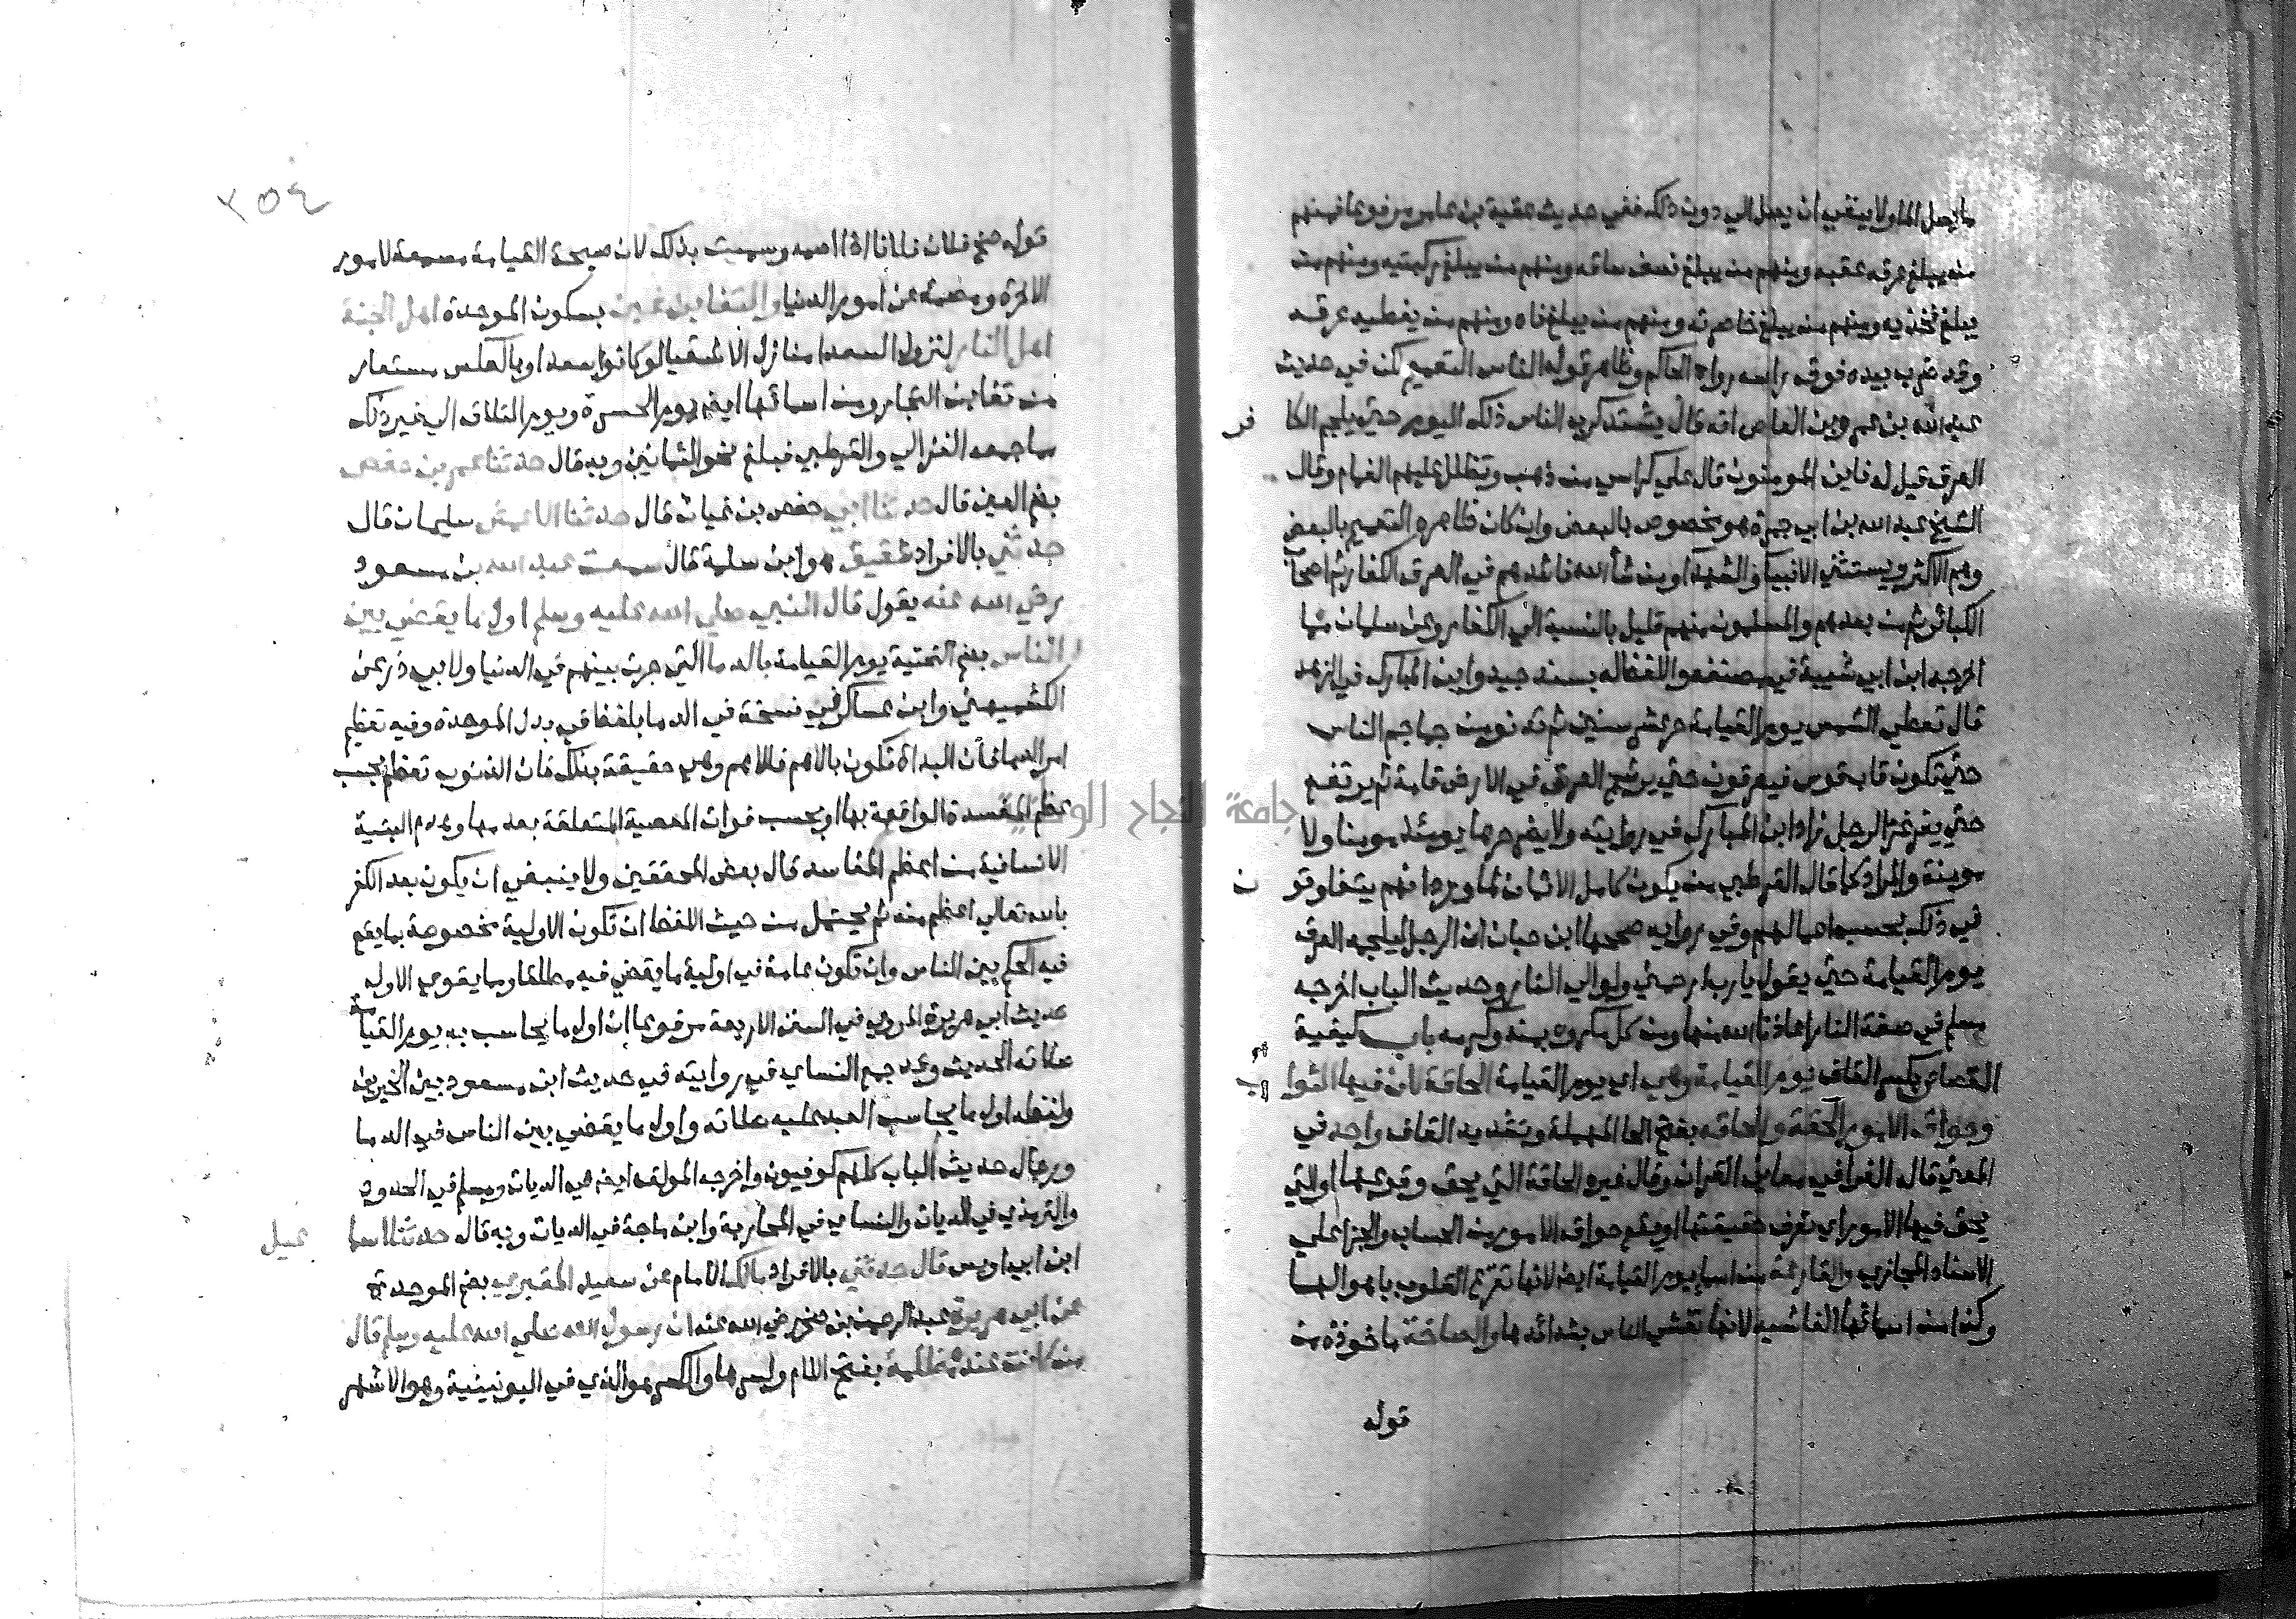 ما يصل الما ولا ينبغي ان يصل الي دون ذلك ففي حديث عقبة بن عامر مرفوعا فمنهم
من يبلغ عرقه عقبه ومنهم من يبلغ نصف ساقه ومنهم من يبلغ ركبتيه ومنهم من
يبلغ فخذيه ومنهم من يبلغ خاصرته ومنهم من يبلغ فاه ومنهم من يغطيه عرقه
وقد ضرب بيده فوق راسه رواه الحاكم وظاهر قوله الناس التعميم لكن في حديث
عبد الله بن عمرو بن العاص انه قال يشتد كرب الناس ذلك اليوم حتي يلجم الكا فر
العرق قيل له فاين المومنون قال علي كراسي من ذهب وتظلل عليهم الغمام وقال
الشيخ عبد الله بن ابي جمرة هو مخصوص بالبعض وان كان ظاهره التعميم بالبعض
وهم الاكثر ويستثني الانبيا والشهدا ومن شا الله فاشدهم في العرق الكفار ثم اصحاب
الكبائر ثم من بعدهم والمسلمون منهم قليل بالنسبة الي الكفار وعن سلمان مما
اخرجه ابن ابي شيبة في مصنفه واللفظ له بسند جيد وابن المبارك في الزهد
قال تعطي الشمس يوم القيامة حر عشر سنين ثم تدنو من جماجم الناس
حتي تكون قاب قوس فيعرقون حتي يرشح العرق في الارض قامة ثم يرتفع
حتي يغرغر الرجل زاد ابن المبارك في روايته ولا يضر حرها يومئذ مومنا ولا
مومنة والمراد كما قال القرطبي من يكون كامل الايمان لما ورد انهم يتفاوتو ن
في ذلك بحسب اعمالهم وفي رواية صححها ابن حبان ان الرجل ليلجمه العرق
يوم القيامة حتي يقول يارب ارحمني ولو الي النار وحديث الباب اخرجه
مسلم في صفة النار اعاذنا الله منها ومن كل مكروه بمنه وكرمه باب كيفية
القصاص بكسر القاف يوم القيامة وهي اي يوم القيامة الحاقة لان فيها الثوا ب
وحواق الامور الحقة والحاقه بفتح الحا المهملة وتشديد القاف واحد في
المعني قاله الفرا في معاني القران وقال غيره الحاقة التي يحق وقوعها او التي
يحق فيها الامور اي تعرف حقيقتها او يقع حواق الامور من الحساب والجزا علي
الاسناد المجازي والقارعة من اسما يوم القيامة ايضا لانها تقرع القلوب باهوالها
وكذا من اسمائها الغاشيه لانها تغشي الناس بشدائدها والصاخة ماخوذة من
قوله
٣٥٤
قوله صخ فلان فلانا اذا اصمه وسميت بذلك لان صيحة القيامة مسمعة لامور
الاخرة ومصمة عن امور الدنيا والتغابن غبن بسكون الموحدة اهل الجنة
اهل النار لنزول السعدا منازل الاشقيا لو كانوا سعدا وبالعكس مستعار
من تغابن التجار ومن اسمائها ايضا يوم الحسرة ويوم التلاق الي غير ذلك
مما جمعه الغزالي والقرطبي فبلغ نحو الثمانين وبه قال حدثنا عمر بن حفص
بضم العين قال حدثنا ابي حفص بن غياث قال حدثنا الاعمش سليمان قال
حدثني بالافراد شقيق هو ابن سلمة قال سمعت عبد الله بن مسعود
رضي الله عنه يقول قال النبي صلي الله عليه وسلم اول ما يقضي بين
الناس بضم التحتية يوم القيامة بالدما التي جرت بينهم في الدنيا ولابي ذر عن
الكشميهني وابن عساكر في نسخة في الدما بلفظ في بدل الموحدة وفيه تعظيم
امر الدما فان البداة تكون بالاهم فالاهم وهي حقيقة بذلك فان الذنوب تعظم بحسب
عظم المفسدة الواقعة بها او بحسب فوات المصلحة المتعلقة بعدمها وهدم البنية
الانسانية من اعظم المفاسد قال بعض المحققين ولا ينبغي ان يكون بعد الكفر
بالله تعالي اعظم منه ثم يحتمل من حيث اللفظ ان تكون الاولية مخصوصة بما يقع
فيه الحكم بين الناس وان تكون عامة في اولية ما يقضي فيه مطلقا ومما يقوي الاول
حديث ابي هريرة المروي في السنن الاربعة مرفوعا ان اول ما يحاسب به يوم القيامة
صلاته الحديث وقد جمع النساي في روايته في حديث ابن مسعود بين الخبرين
ولفظه اول ما يحاسب العبد عليه صلاته واول ما يقضي بين الناس في الدما
ورجال حديث الباب كلهم كوفيون واخرجه المولف ايضا في الديات ومسلم في الحدود
والترمذي في الديات والنساي في المحاربة وابن ماجة في الديات وبه قال حدثنا اسما عيل
ابن ابي اويس قال حدثني بالافراد مالك الامام عن سعيد المقبري بضم الموحدة
عن ابي هريرة عبد الرحمن بن صخر رضي الله عنه ان رسول الله صلي الله عليه وسلم قال
من كانت عنده مظلمة بفتح اللام وكسرها والكسر هو الذي في اليونينية وهو الاشهر
جامعة النجاح الوطنية